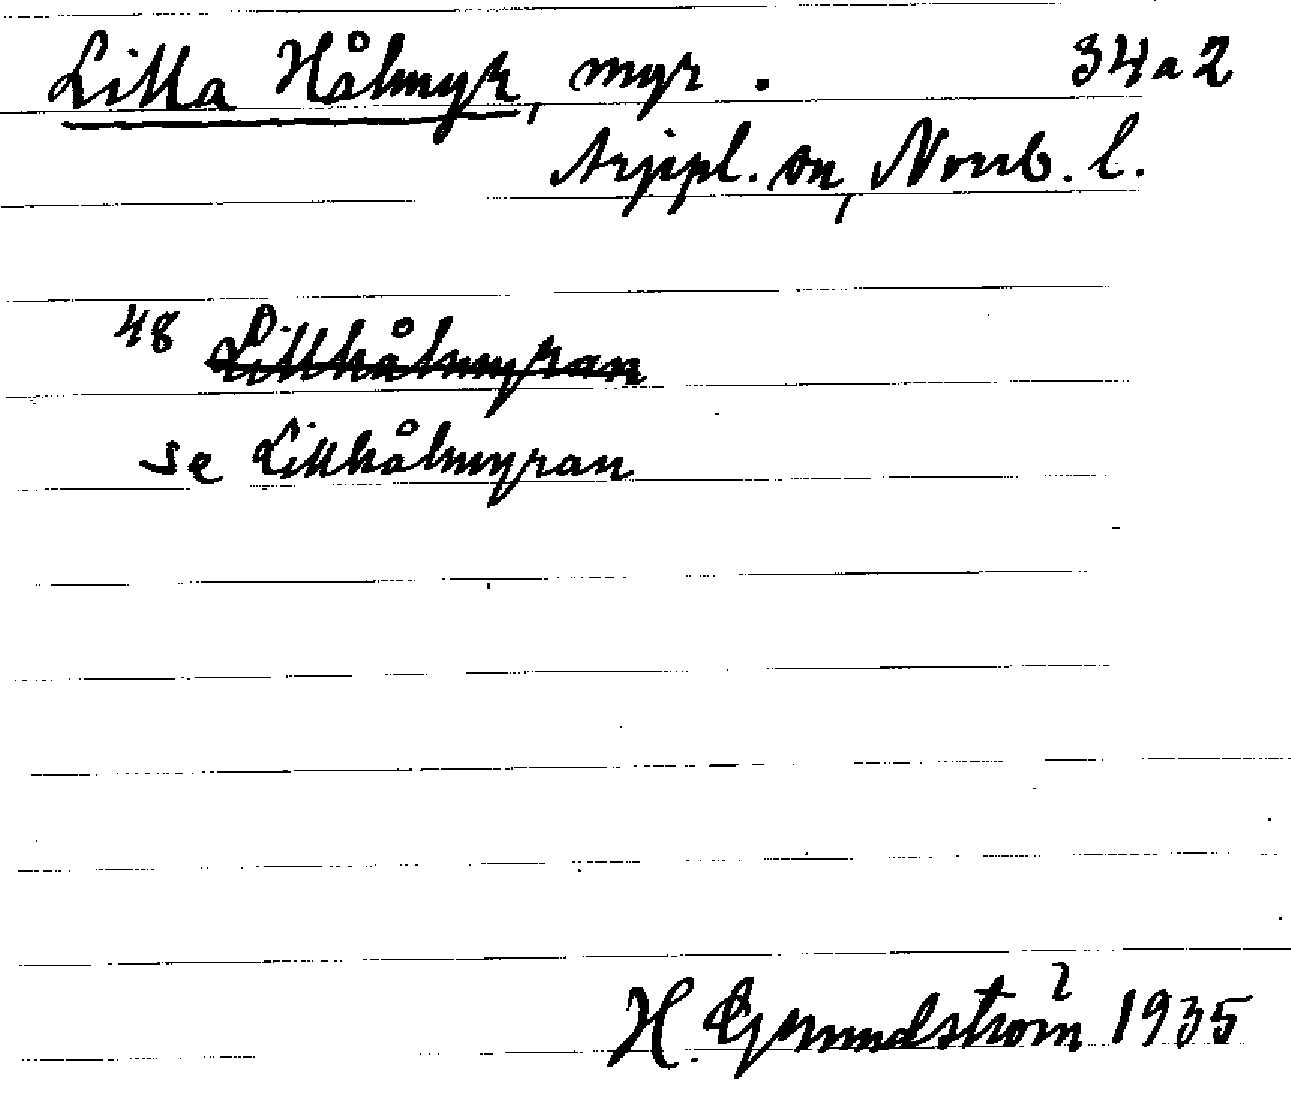 Lilla Hålmyr, myr. 34a2
Arjepl. sn, Norrb. l.
48 Lillhålmyran
se Lillhålmyran
H. Grundström 1935